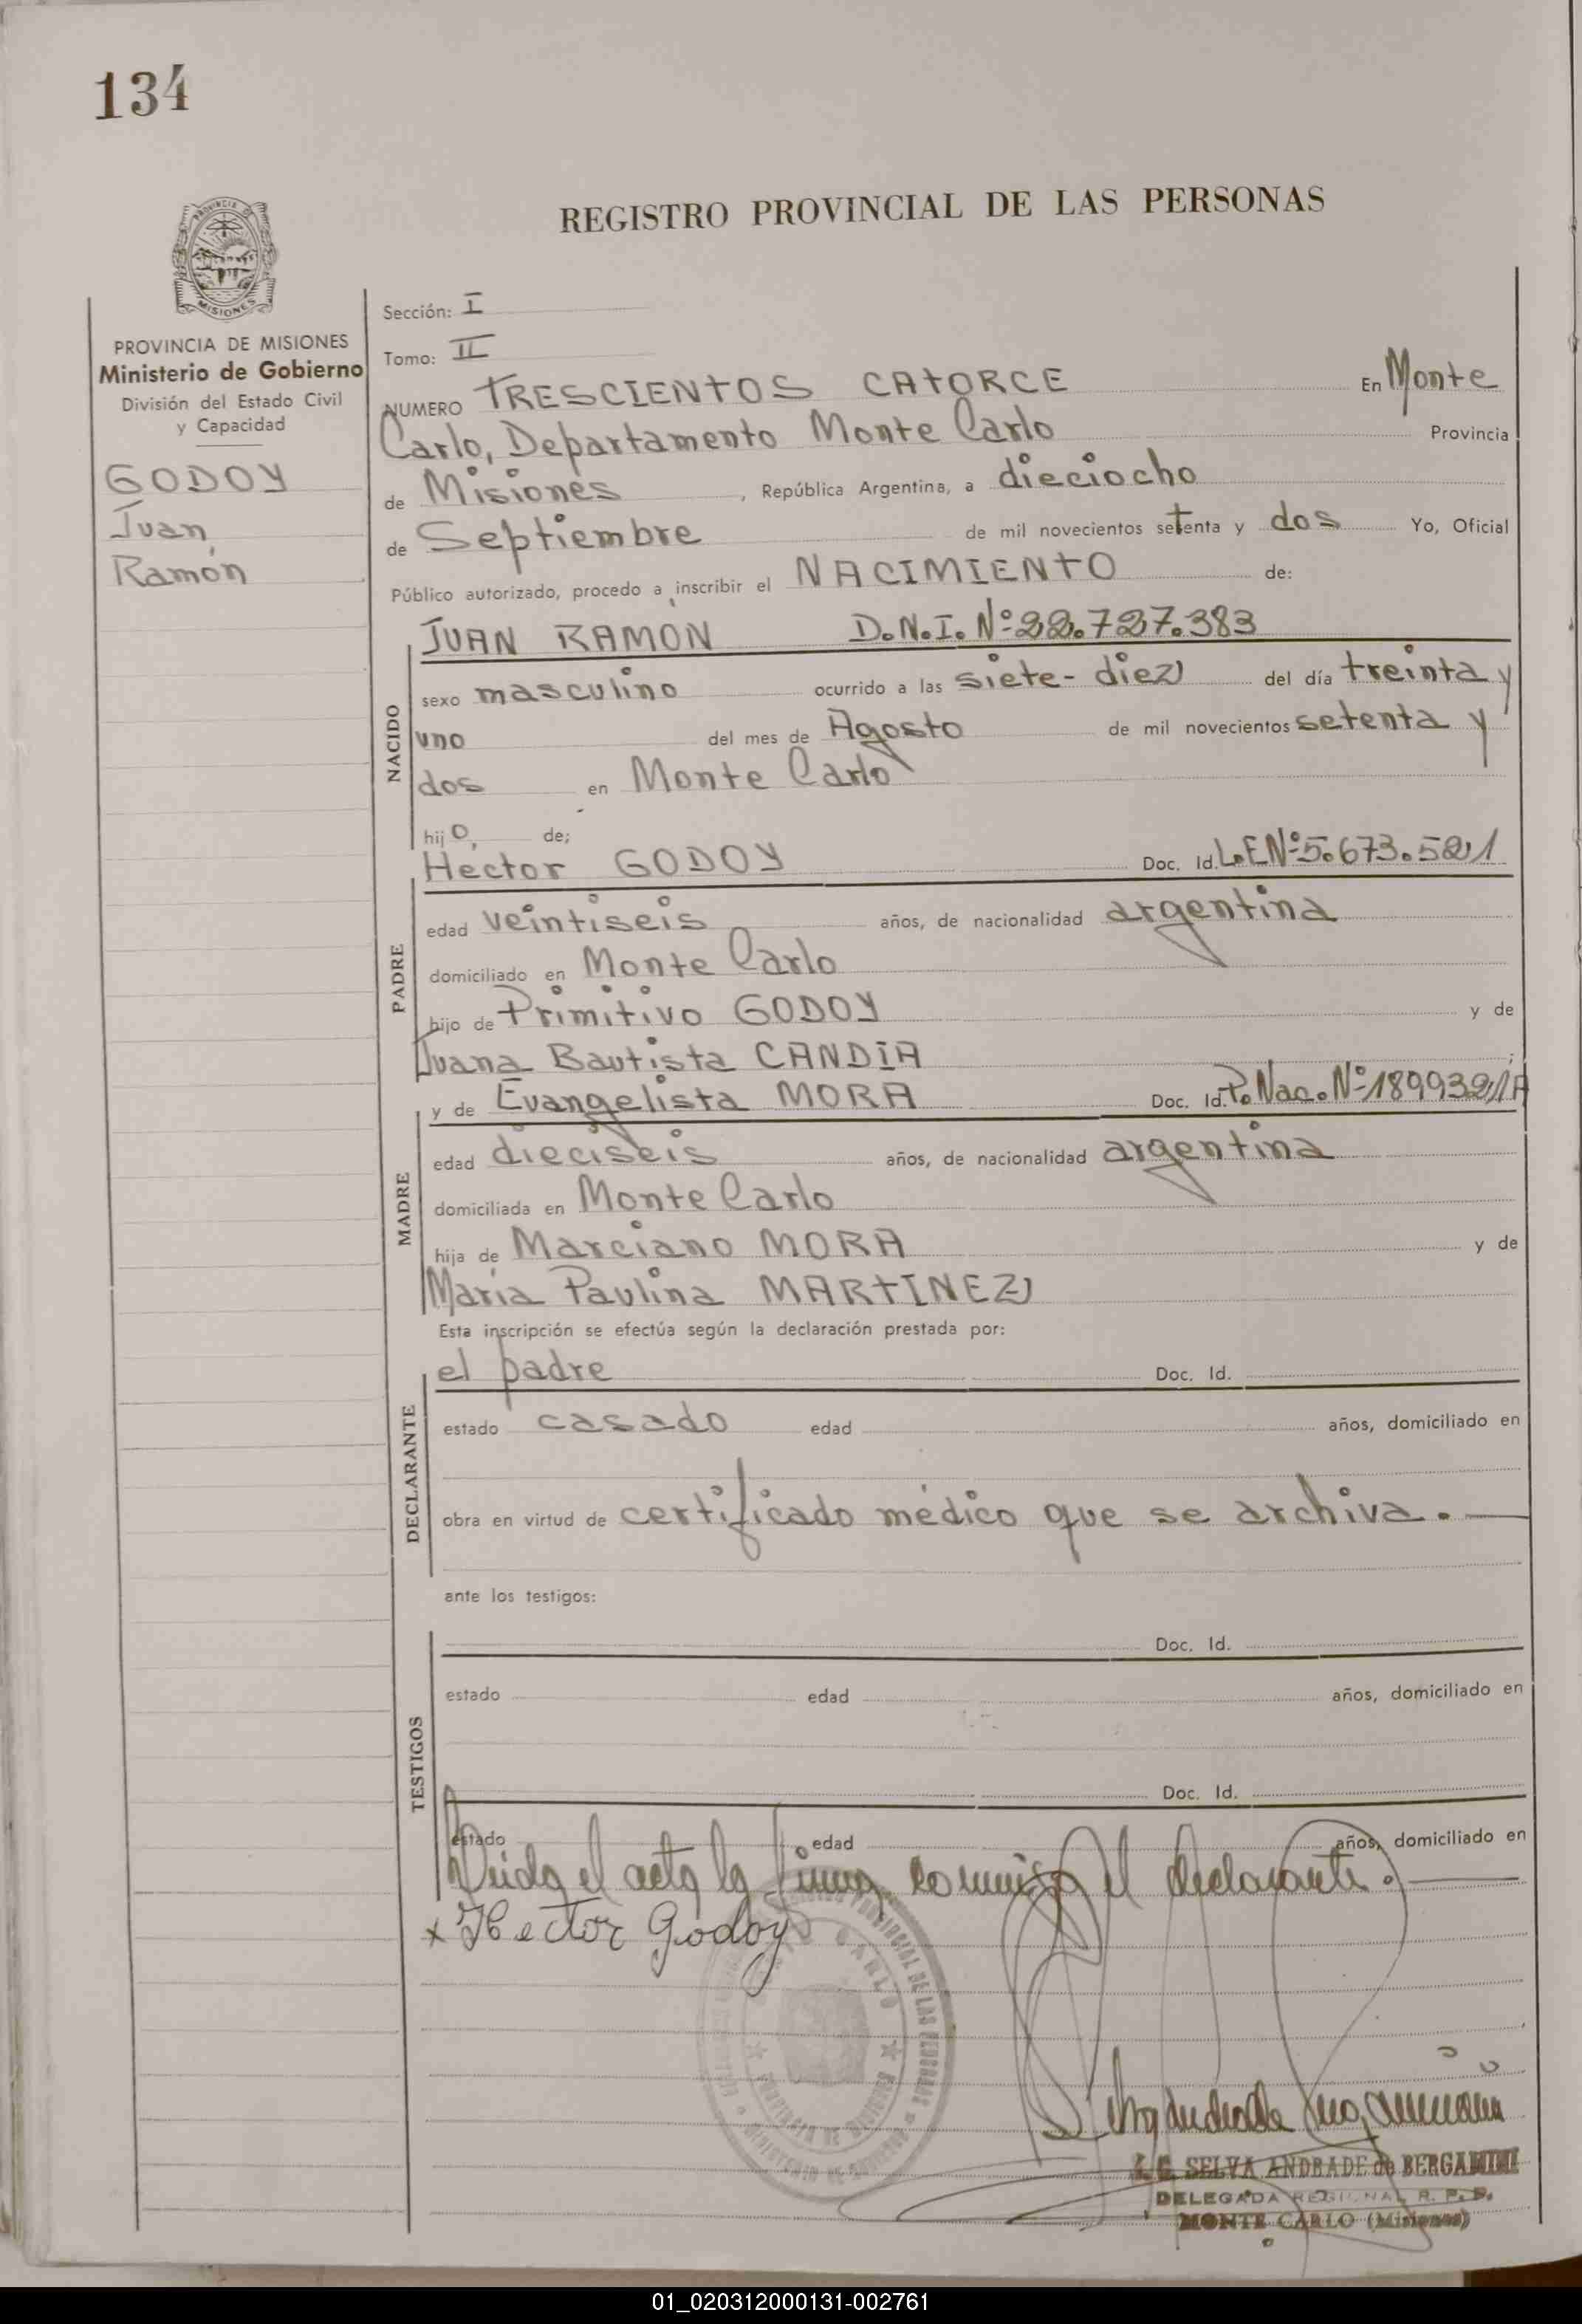 134
REGISTRO PROVINCIAL DE LAS PERSONAS
MISIONES
PROVINCIA DE MISIONES
Ministerio de Gobierno
División del Estado Civil
y Capacidad
GODOY
Juan
Ramón
Sección: I
Tomo: II
NUMERO TRESCIENTOS CATORCE En Monte
Carlo, Departamento Monte Carlo Provincia
de Misiones, República Argentina, a dieciocho
de Septiembre de mil novecientos setenta y dos Yo, Oficial
Público autorizado, procedo a inscribir el NACIMIENTO de:
NACIDO
JUAN RAMON D.N.I. Nº 22.727.383
sexo masculino ocurrido a las siete-diez del día treinta y
uno del mes de Agosto de mil novecientos setenta y
dos en Monte Carlo
hijo, de;
PADRE
Hector GODOY Doc. Id. L.E Nº 5.673.521
edad veintiseis años, de nacionalidad argentina
domiciliado en Monte Carlo
hijo de Primitivo GODOY y de
Juana Bautista CANDIA ;
MADRE
y de Evangelista MORA Doc. Id. P. Nac. Nº 1899321A
edad dieciseis años, de nacionalidad argentina
domiciliada en Monte Carlo
hija de Marciano MORA y de
María Paulina MARTINEZ
Esta inscripción se efectúa según la declaración prestada por:
DECLARANTE
el padre Doc. Id.
estado casado edad años, domiciliado en
obra en virtud de certificado médico que se archiva.
ante los testigos:
TESTIGOS
Doc. Id.
estado edad años, domiciliado en
Doc. Id.
estado edad años, domiciliado en
Leida el acta la firma conmigo el declarante.
x Hector Godoy
SELVA ANDRADE de BERGAMINI
DELEGADA REGIONAL R. P. P.
MONTE CARLO (Misiones)
01_020312000131-002761